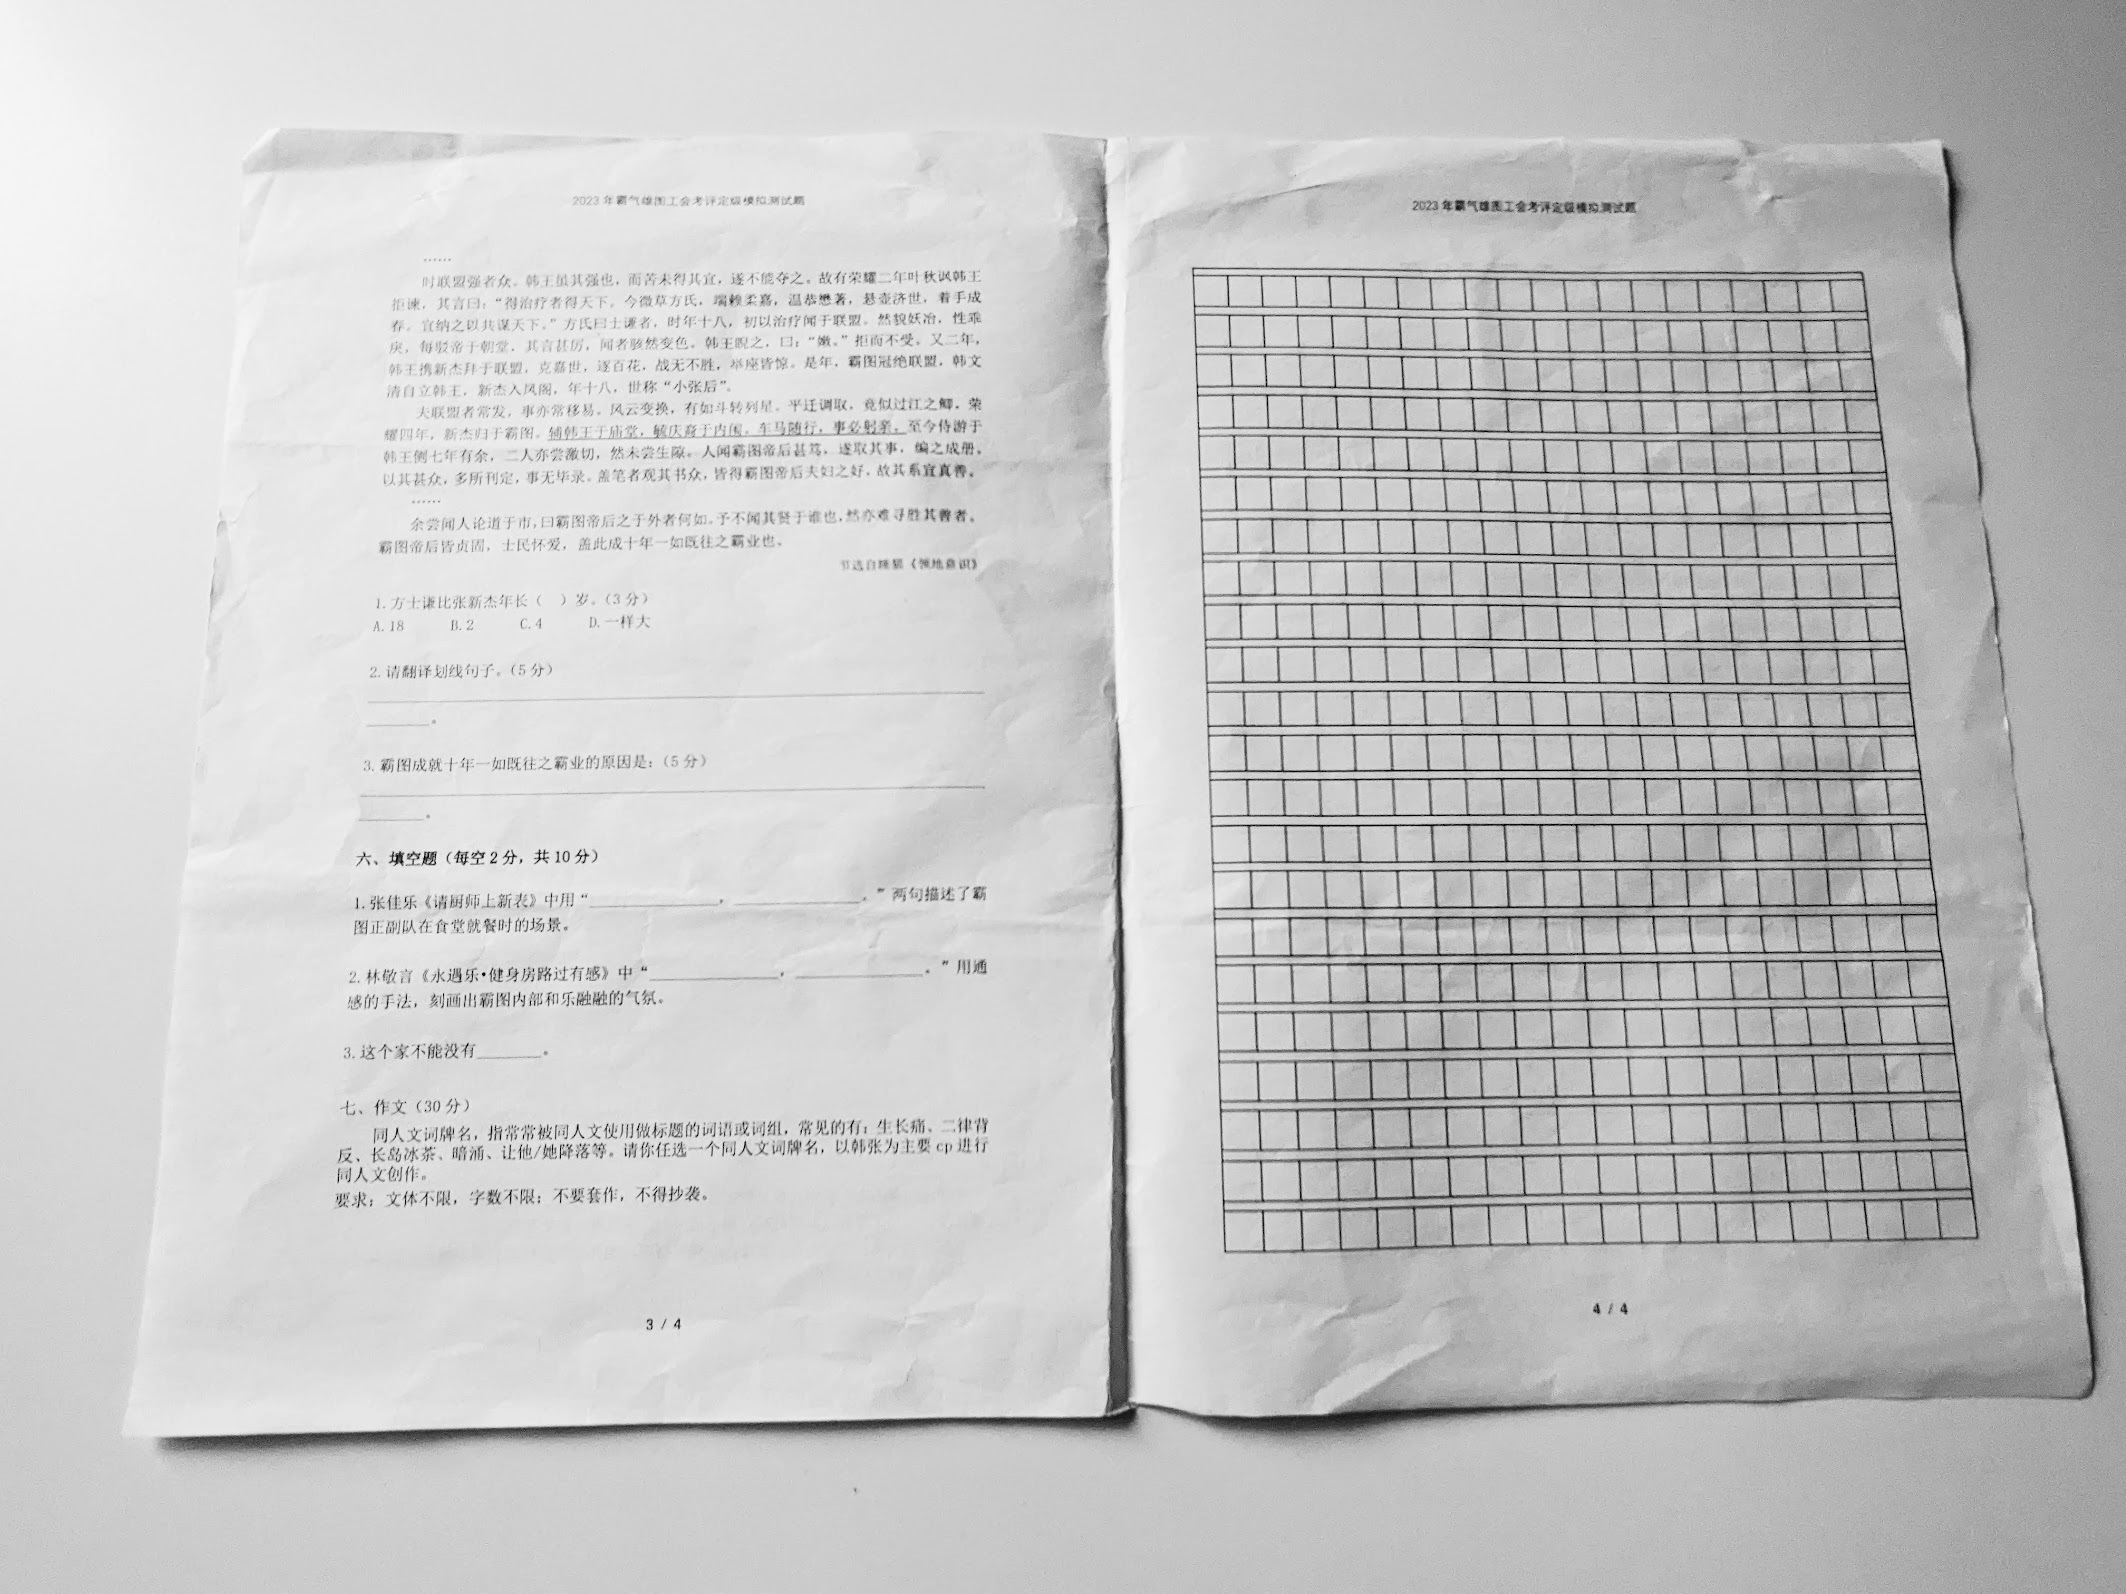 2023年霸气雄图工会考评定级模拟测试题
……
时联盟强者众。韩王虽其强也，而苦未得其宜，遂不能夺之。故有荣耀二年叶秋讽韩王
拒谏，其言曰：“得治疗者得天下。今微草方氏，端赖柔嘉，温恭懋著，悬壶济世，着手成
春。宜纳之以共谋天下。”方氏曰士谦者，时年十八，初以治疗闻于联盟。然貌妖冶，性乖
戾，每驳帝于朝堂，其言甚厉，闻者骇然变色。韩王睨之，曰：“嫩。”拒而不受。又二年，
韩王携新杰拜于联盟，克嘉世，逐百花，战无不胜，举座皆惊。是年，霸图冠绝联盟，韩文
清自立韩王，新杰入凤阁，年十八，世称“小张后”。
夫联盟者常发，事亦常移易。风云变换，有如斗转列星。平迁调取，竟似过江之鲫。荣
耀四年，新杰归于霸图。辅韩王于庙堂，毓庆裔于内闱。车马随行，事必躬亲。至今侍游于
韩王侧七年有余，二人亦尝激切，然未尝生隙。人闻霸图帝后甚笃，遂取其事，编之成册。
以其甚众，多所刊定，事无毕录。盖笔者观其书众，皆得霸图帝后夫妇之好，故其系宜真善。
……
余尝闻人论道于市，曰霸图帝后之于外者何如。予不闻其贤于谁也，然亦难寻胜其善者。
霸图帝后皆贞固，士民怀爱，盖此成十年一如既往之霸业也。
节选自睡猫《领地意识》
1.方士谦比张新杰年长（ ）岁。（3分）
A.18 B.2 C.4 D.一样大
2.请翻译划线句子。（5分）
________。
3.霸图成就十年一如既往之霸业的原因是：（5分）
________。
六、填空题（每空2分，共10分）
1.张佳乐《请厨师上新表》中用“________，________。”两句描述了霸
图正副队在食堂就餐时的场景。
2.林敬言《永遇乐•健身房路过有感》中“________，________。”用通
感的手法，刻画出霸图内部和乐融融的气氛。
3.这个家不能没有________。
七、作文（30分）
同人文词牌名，指常常被同人文使用做标题的词语或词组，常见的有：生长痛、二律背
反、长岛冰茶、暗涌、让他/她降落等。请你任选一个同人文词牌名，以韩张为主要cp进行
同人文创作。
要求：文体不限，字数不限；不要套作，不得抄袭。
3 / 4
2023年霸气雄图工会考评定级模拟测试题
4 / 4